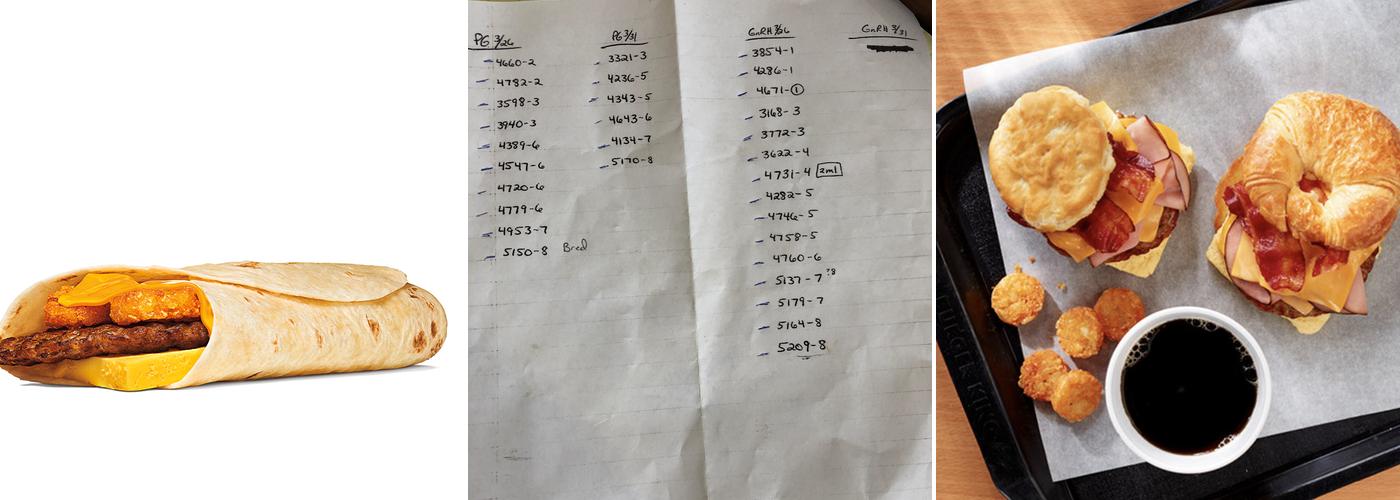 PG 3/26
4660-2
4782-2
3598-3
3940-3
4389-6
4547-6
4720-6
4779-6
4953-7
5150-8 Bred
PG 3/31
3321-3
4236-5
4343-5
4643-6
4134-7
5170-8
GnRH 3/26
3854-1
4286-1
4671-1
3168-3
3772-3
3622-4
4731-4 2ml
4282-5
4746-5
4758-5
4760-6
5137-7 ?8
5179-7
5164-8
5209-8
GnRH 3/31
BURGER KING